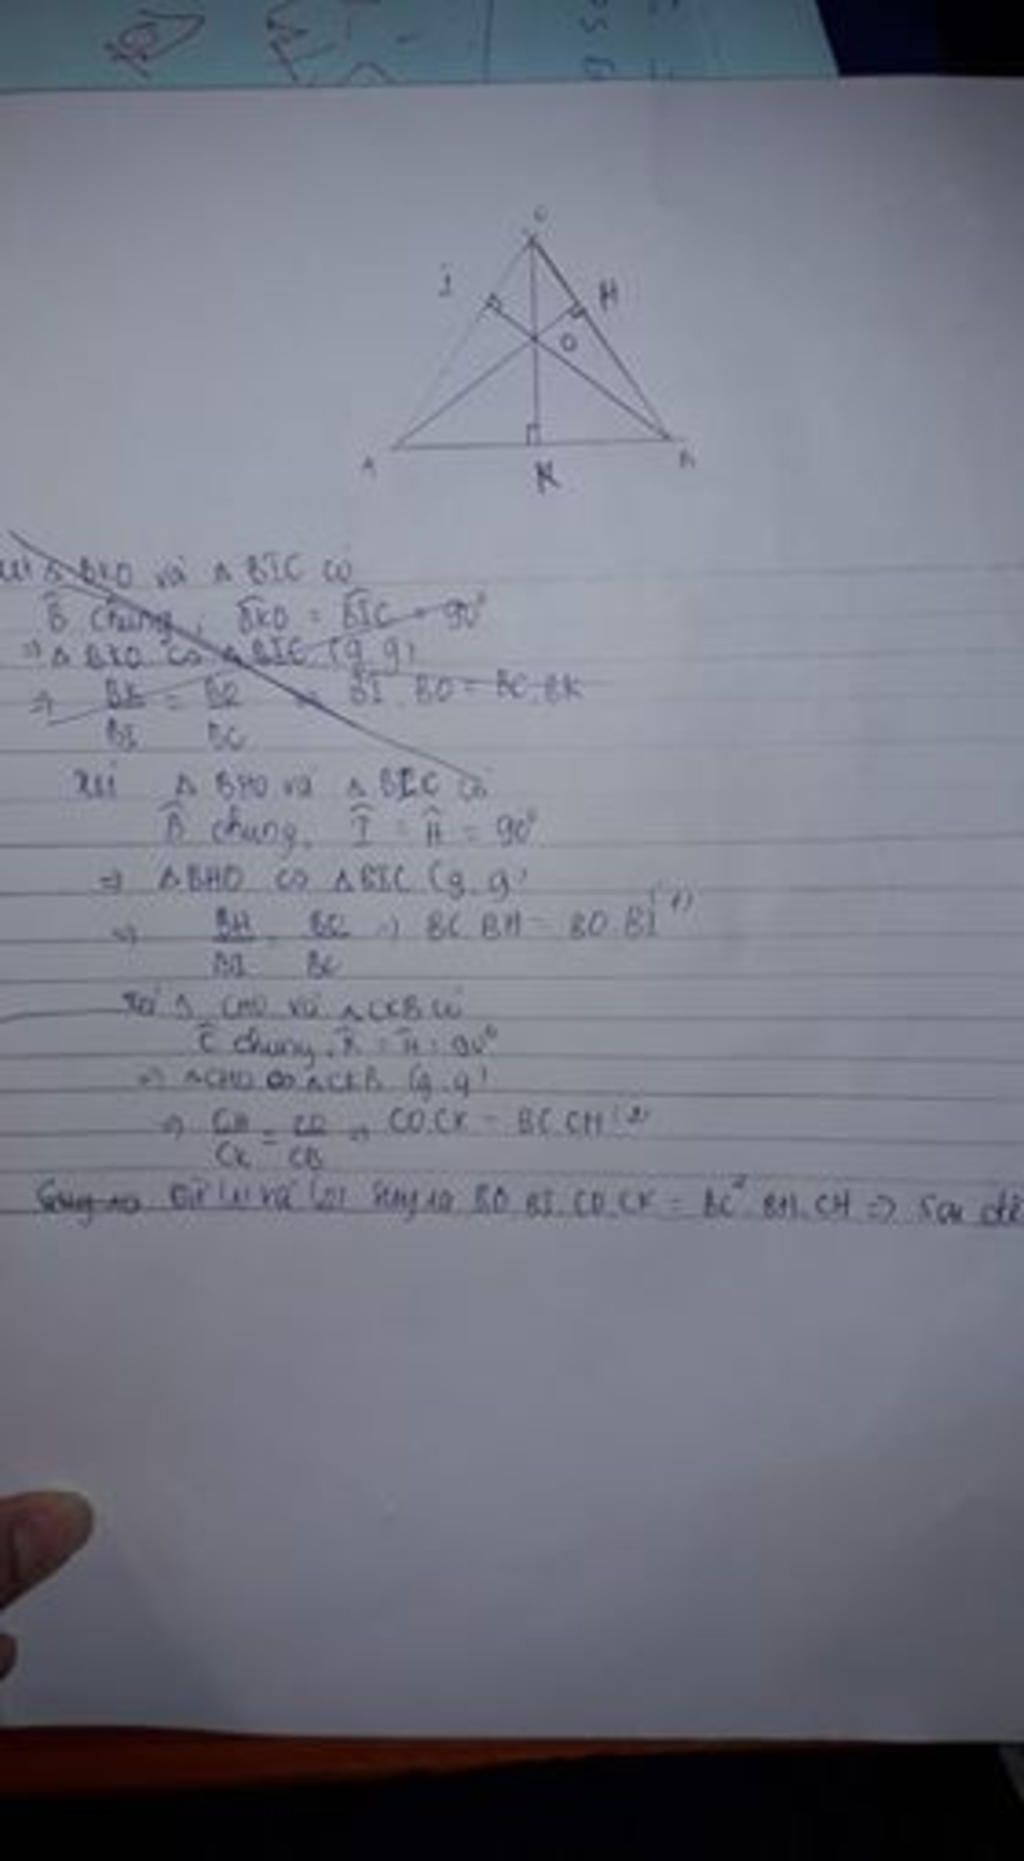 C
I
H
O
A
B
K
Xét Δ BKO và Δ BIC có
B̂ chung, B̂KO = B̂IC = 90°
=> Δ BKO ∽ Δ BIC (g.g)
=> BK/BI = BO/BC => BI.BO = BC.BK
Xét Δ BHO và Δ BIC có
B̂ chung, Î = Ĥ = 90°
=> ΔBHO ∽ ΔBIC (g.g)
=> BH/BI = BO/BC => BC.BH = BO.BI (1)
Xét Δ CHO và ΔCKB có
Ĉ chung, K̂ = Ĥ = 90°
=> ΔCHO ∽ ΔCKB (g.g)
=> CH/CK = CO/CB => CO.CK = BC.CH (2)
Suy ra Từ (1) và (2) suy ra BO.BI.CO.CK = BC².BH.CH => Sai đề